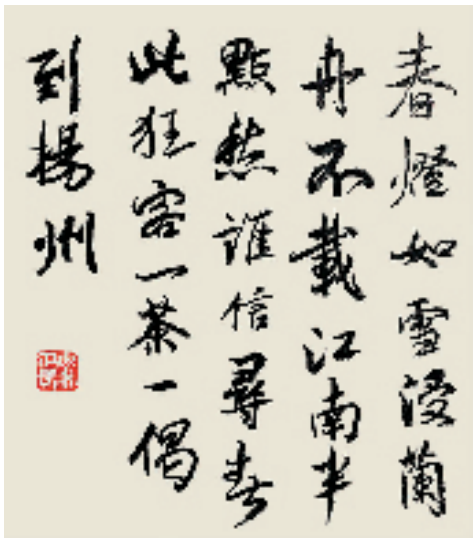 春燈如雪浸蘭
舟不載江南半
點愁誰信尋春
此狂客一茶一偈
到揚州